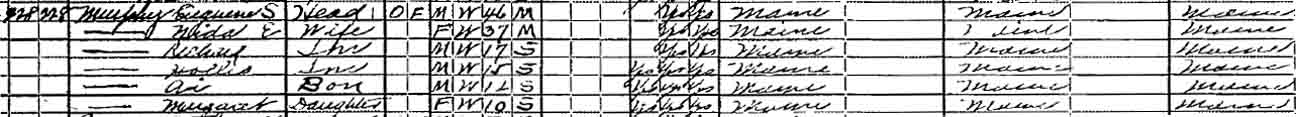 228 228 Murphy Eugene S Head 1 O F M W 46 M Yes Yes Maine Maine Maine
— E Wife F W 37 M Yes Yes Maine Maine
— M W 17 S Yes Yes Maine Maine Maine
— Hollis M W 15 S Yes Yes Yes Maine Maine Maine
— M W 12 S Yes Yes Yes Maine Maine Maine
— Margaret Daughter F W 10 S Yes Yes Yes Maine Maine Maine